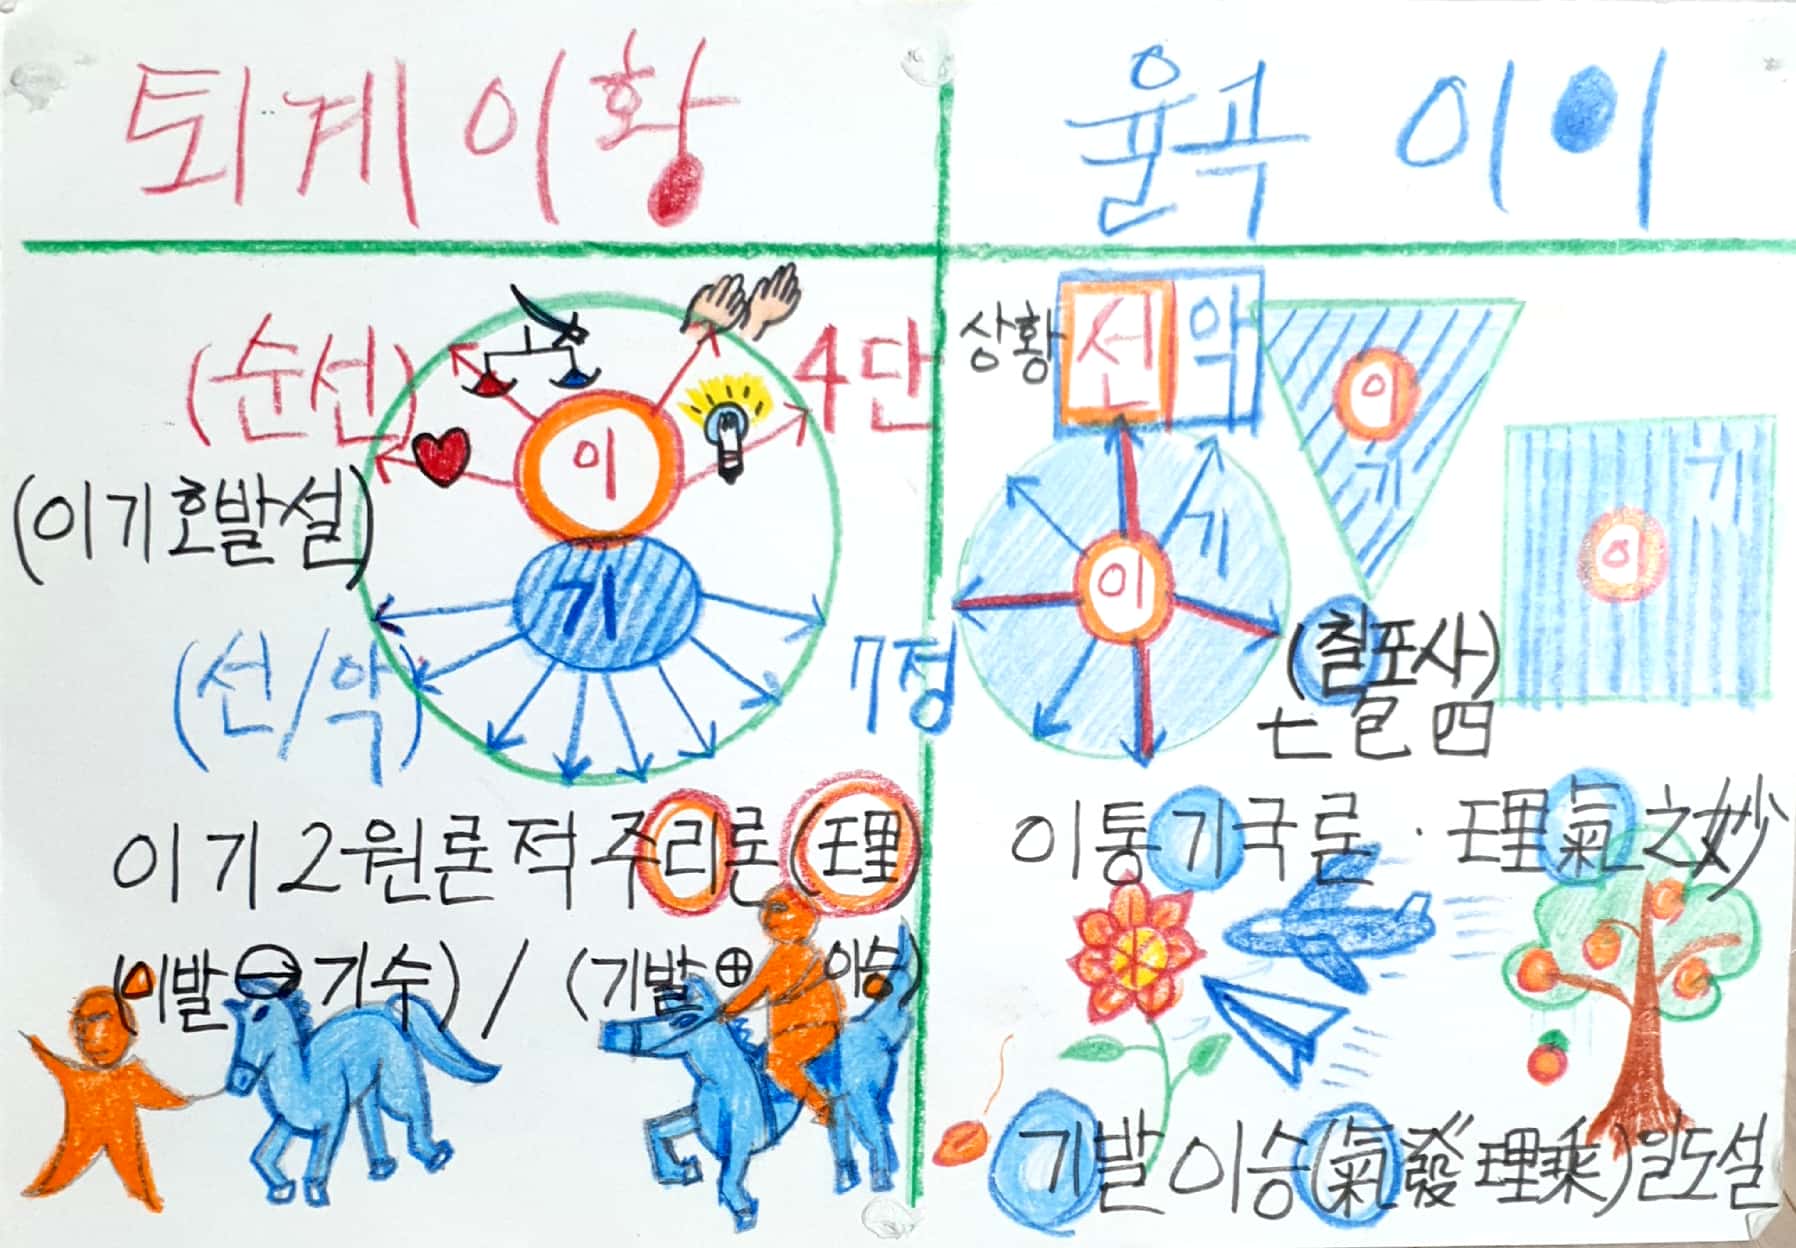 퇴계 이황
(순선)
4단
이
(이기호발설)
기
(선/악)
7정
이기2원론적 주리론(理)
(이발 기수) / (기발 이승)
율곡 이이
상황 선 악
이
기
이
기
이
기
(칠포사)
七包四
이통기국론 · 理氣之妙
기발이승(氣發理乘)일도설